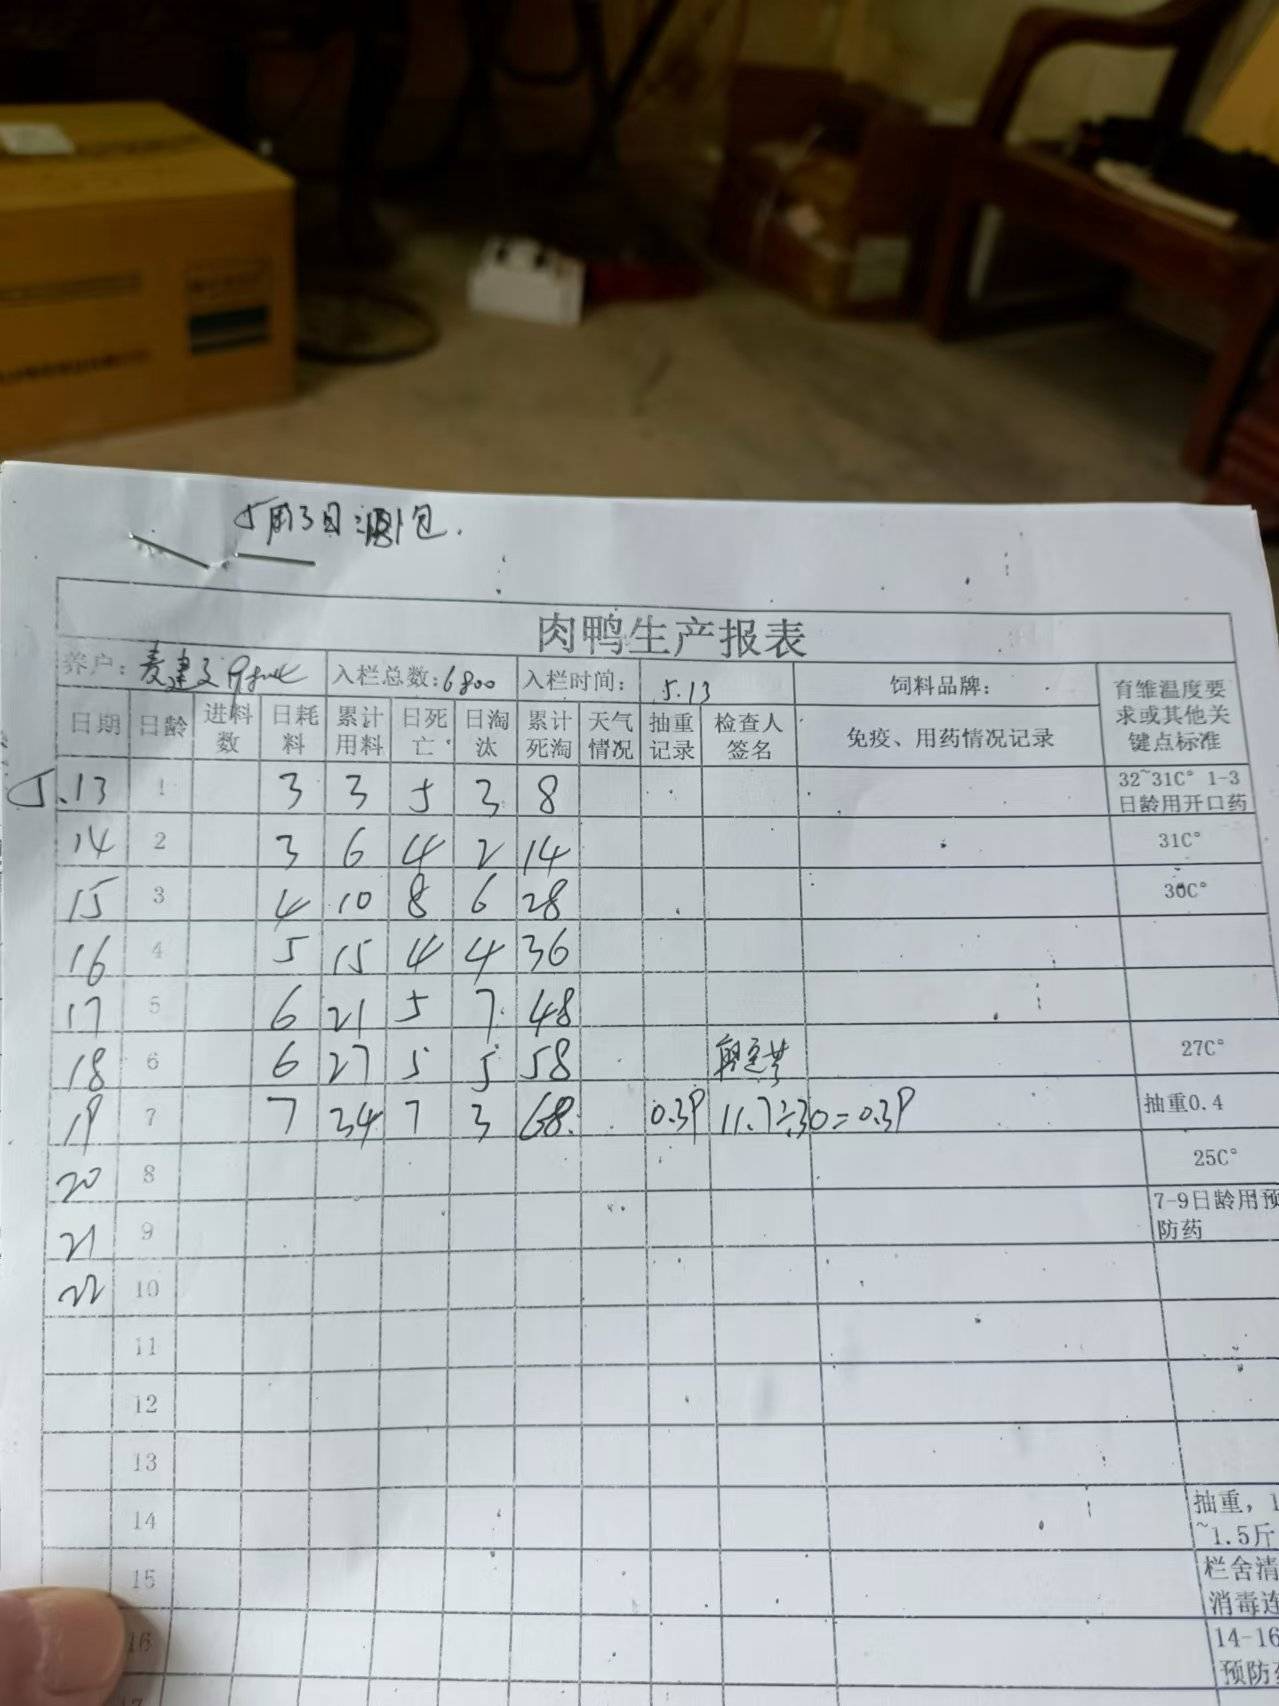 肉鸭生产报表
养户: 麦建文 入栏总数:6800 入栏时间: 5.13 饲料品牌: 育雏温度要求或其他关键点标准
日期 日龄 进料数 日耗料 累计用料 日死亡 日淘汰 累计死淘 天气情况 抽重记录 检查人签名 免疫、用药情况记录
5.13 1 3 3 5 3 8 32~31C° 1-3日龄用开口药
14 2 3 6 4 2 14 31C°
15 3 4 10 8 6 28 30C°
16 4 5 15 4 4 36
17 5 6 21 5 7 48
18 6 6 27 5 5 58 27C°
19 7 7 34 7 3 68 0.39 11.7÷30=0.39 抽重0.4
20 8 25C°
21 9 7-9日龄用预防药
22 10
11
12
13
14 抽重,1~1.5斤
15 栏舍清消毒连
16 14-16预防
17